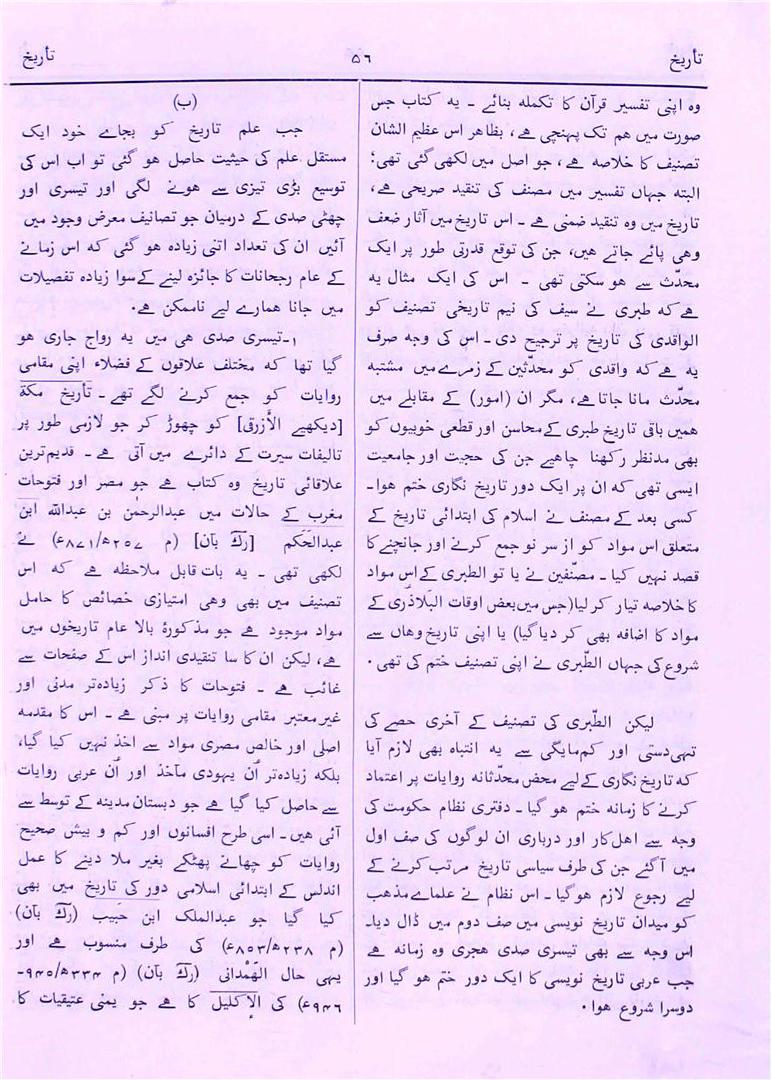 تأریخ ٥٦ تأریخ
وہ اپنی تفسیر قرآن کا تکملہ بنائے ـ یہ کتاب جس
صورت میں ھم تک پہنچی ہے، بظاھر اس عظیم الشان
تصنیف کا خلاصہ ہے، جو اصل میں لکھی گئی تھی؛
البتہ جہاں تفسیر میں مصنف کی تنقید صریحی ہے،
تاریخ میں وہ تنقید ضمنی ہے ـ اس تاریخ میں آثار ضعف
وھی پائے جاتے ھیں، جن کی توقع قدرتی طور پر ایک
محدّث سے ھو سکتی تھی ـ اس کی ایک مثال یہ
ہے کہ طبری نے سیف کی نیم تاریخی تصنیف کو
الواقدی کی تاریخ پر ترجیح دی ـ اس کی وجہ صرف
یہ ہے کہ واقدی کو محدّثین کے زمرے میں مشتبہ
محدّث مانا جاتا ہے، مگر ان (امور) کے مقابلے میں
ھمیں باقی تاریخ طبری کے محاسن اور قطعی خوبیوں کو
بھی مدنظر رکھنا چاھیے جن کی حجیت اور جامعیت
ایسی تھی کہ ان پر ایک دور تاریخ نگاری ختم ھوا ـ
کسی بعد کے مصنف نے اسلام کی ابتدائی تاریخ کے
متعلق اس مواد کو از سر نو جمع کرنے اور جانچنے کا
قصد نہیں کیا ـ مصنّفین نے یا تو الطبری کے اس مواد
کا خلاصہ تیار کر لیا (جس میں بعض اوقات البَلاذُری کے
مواد کا اضافہ بھی کر دیا گیا) یا اپنی تاریخ وھاں سے
شروع کی جہاں الطّبری نے اپنی تصنیف ختم کی تھی.
لیکن الطّبری کی تصنیف کے آخری حصے کی
تہی دستی اور کم مایگی سے یہ انتباہ بھی لازم آیا
کہ تاریخ نگاری کے لیے محض محدّثانہ روایات پر اعتماد
کرنے کا زمانہ ختم ھو گیا ـ دفتری نظام حکومت کی
وجہ سے اھل کار اور درباری ان لوگوں کی صف اول
میں آ گئے جن کی طرف سیاسی تاریخ مرتب کرنے کے
لیے رجوع لازم ھو گیا ـ اس نظام نے علماے مذھب
کو میدان تاریخ نویسی میں صف دوم میں ڈال دیا ـ
اس وجہ سے بھی تیسری صدی ھجری وہ زمانہ ہے
جب عربی تاریخ نویسی کا ایک دور ختم ھو گیا اور
دوسرا شروع ھوا.
(ب)
جب علم تاریخ کو بجاے خود ایک
مستقل علم کی حیثیت حاصل ھو گئی تو اب اس کی
توسیع بڑی تیزی سے ھونے لگی اور تیسری اور
چھٹی صدی کے درمیان جو تصانیف معرض وجود میں
آئیں ان کی تعداد اتنی زیادہ ھو گئی کہ اس زمانے
کے عام رجحانات کا جائزہ لینے کے سوا زیادہ تفصیلات
میں جانا ھمارے لیے ناممکن ہے.
۱ ـ تیسری صدی ھی میں یہ رواج جاری ھو
گیا تھا کہ مختلف علاقوں کے فضلاء اپنی مقامی
روایات کو جمع کرنے لگے تھے ـ تأریخ مکة
[دیکھیے الأزرقی] کو چھوڑ کر جو لازمی طور پر
تالیفات سیرت کے دائرے میں آتی ہے ـ قدیم ترین
علاقائی تاریخ وہ کتاب ہے جو مصر اور فتوحات
مغرب کے حالات میں عبدالرحمٰن بن عبداللہ ابن
عبدالحَکم [رکّ بآن] (م ٢٥٧ھ/٨٧١ء) نے
لکھی تھی ـ یہ بات قابل ملاحظہ ہے کہ اس
تصنیف میں بھی وھی امتیازی خصائص کا حامل
مواد موجود ہے جو مذکورۂ بالا عام تاریخوں میں
ہے، لیکن ان کا سا تنقیدی انداز اس کے صفحات سے
غائب ہے ـ فتوحات کا ذکر زیادہ تر مدنی اور
غیر معتبر مقامی روایات پر مبنی ہے ـ اس کا مقدمہ
اصلی اور خالص مصری مواد سے اخذ نہیں کیا گیا،
بلکہ زیادہ تر اُن یہودی مآخذ اور اُن عربی روایات
سے حاصل کیا گیا ہے جو دبستان مدینہ کے توسط سے
آئی ھیں ـ اسی طرح افسانوں اور کم و بیش صحیح
روایات کو چھانے پھٹکے بغیر ملا دینے کا عمل
اندلس کے ابتدائی اسلامی دور کی تاریخ میں بھی
کیا گیا جو عبدالملک ابن حَبیب (رکّ بآن)
(م ٢٣٨ھ/٨٥٣ء) کی طرف منسوب ہے اور
یہی حال الهَمْدانی (رکّ بآن) (م ٣٣٤ھ/٩٤٥ـ
٩٤٦ء) کی الإکلیل کا ہے جو یمنی عتیقیات کا